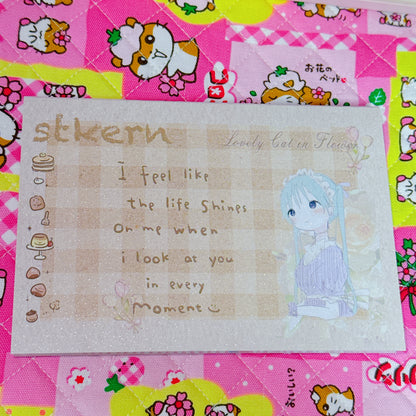 stkern
Lovely Cat in Flower
I feel like
the life Shines
on me when
i look at you
in every
moment
お花の
ベッド
おいしい?